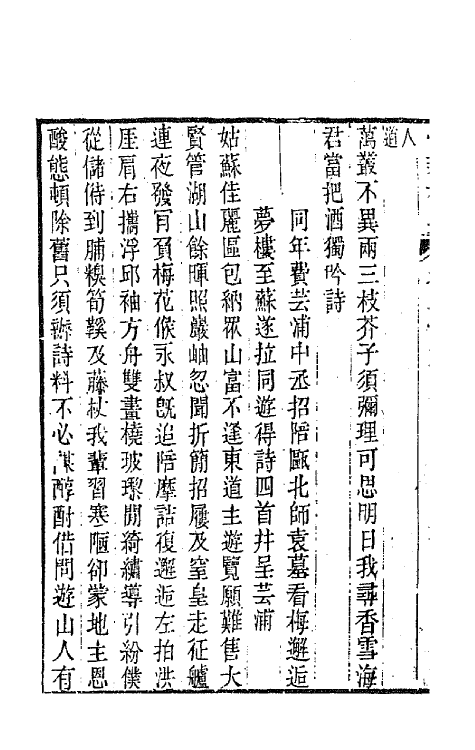 人道
萬叢不異兩三枝芥子須彌理可思明日我尋香雪海
君當把酒獨吟詩
同年費芸浦中丞招陪甌北師袁墓看梅邂逅
夢樓至蘇遂拉同遊得詩四首幷呈芸浦
姑蘇佳麗區包納眾山富不逢東道主遊覽願難售大
賢管湖山餘暉照巖岫忽聞折簡招屨及窒皇走征艫
連夜發肎負梅花候永叔旣追陪摩詰復邂逅左拍洪
厓肩右攜浮邱袖方舟雙畫橈玻瓈閒綺繡導引紛僕
從儲偫到脯糗筍鞵及藤杖我輩習寒陋卻蒙地主恩
酸態頓除舊只須辦詩料不必謀醇酎借問遊山人有